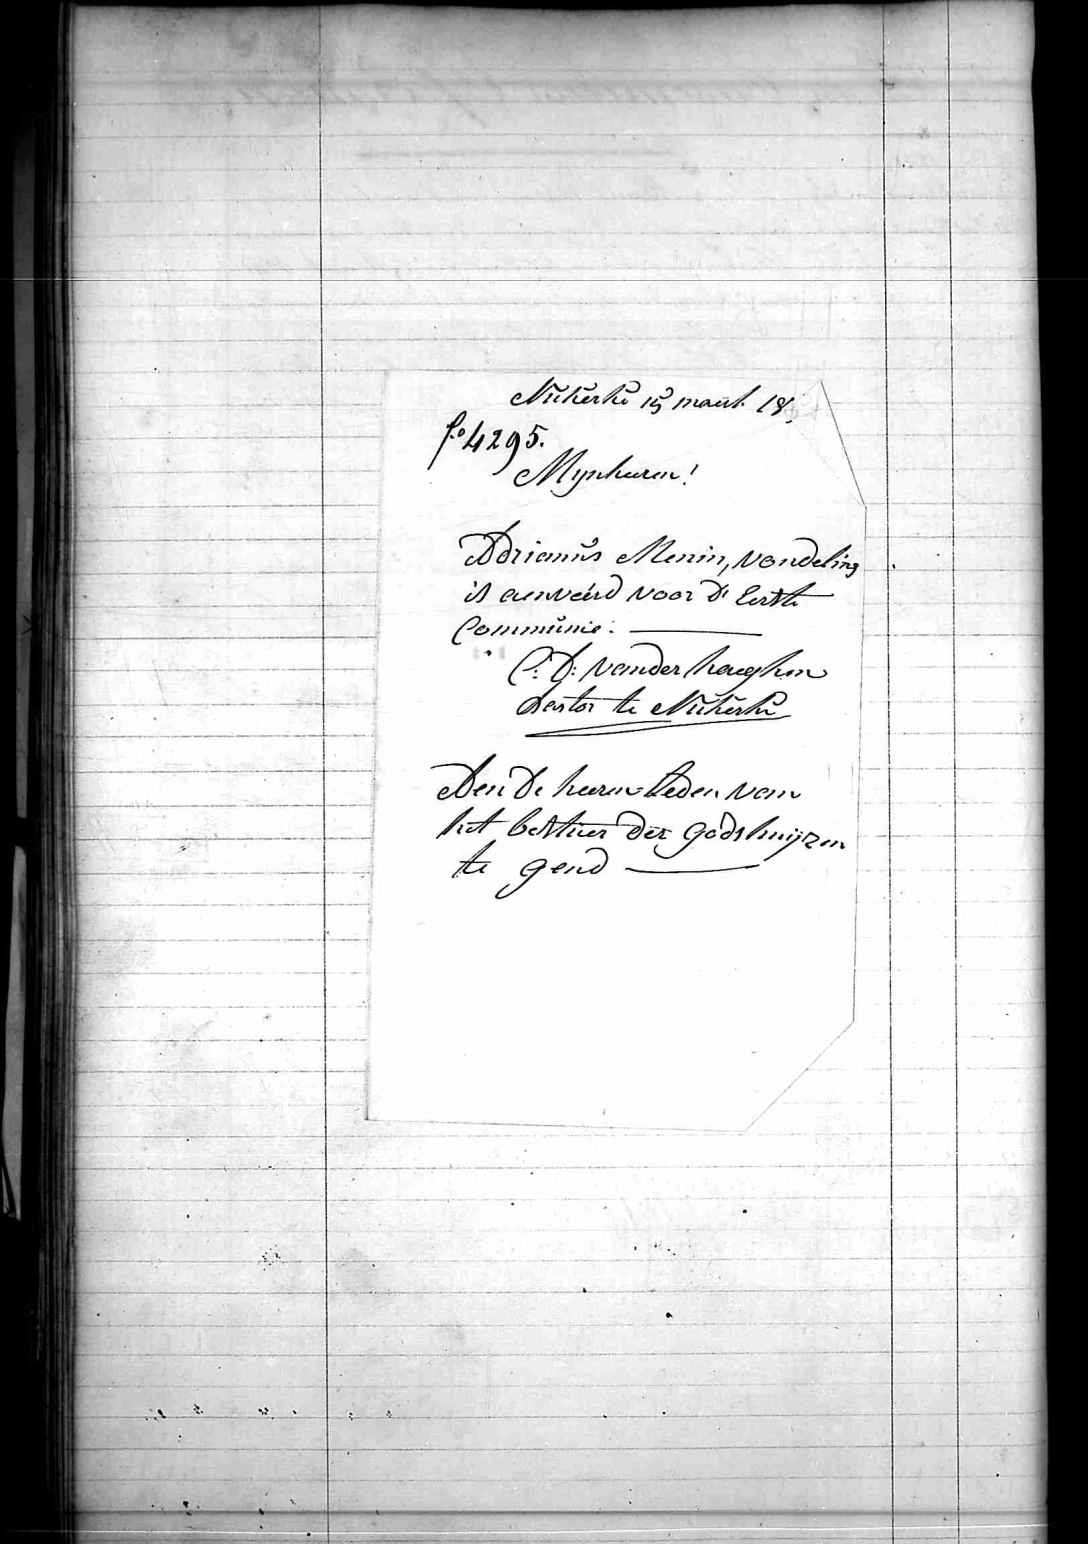 Nukerke 15 maert 18
fo 4295.
Mynheeren!
Adrianus Menin, vondeling
is aenveird voor de Eerste
Communie.
C: D: vander haeghen
Pastor te Nukerke
Aen de heeren Leden van
het bestuer der godshuijzen
te gend